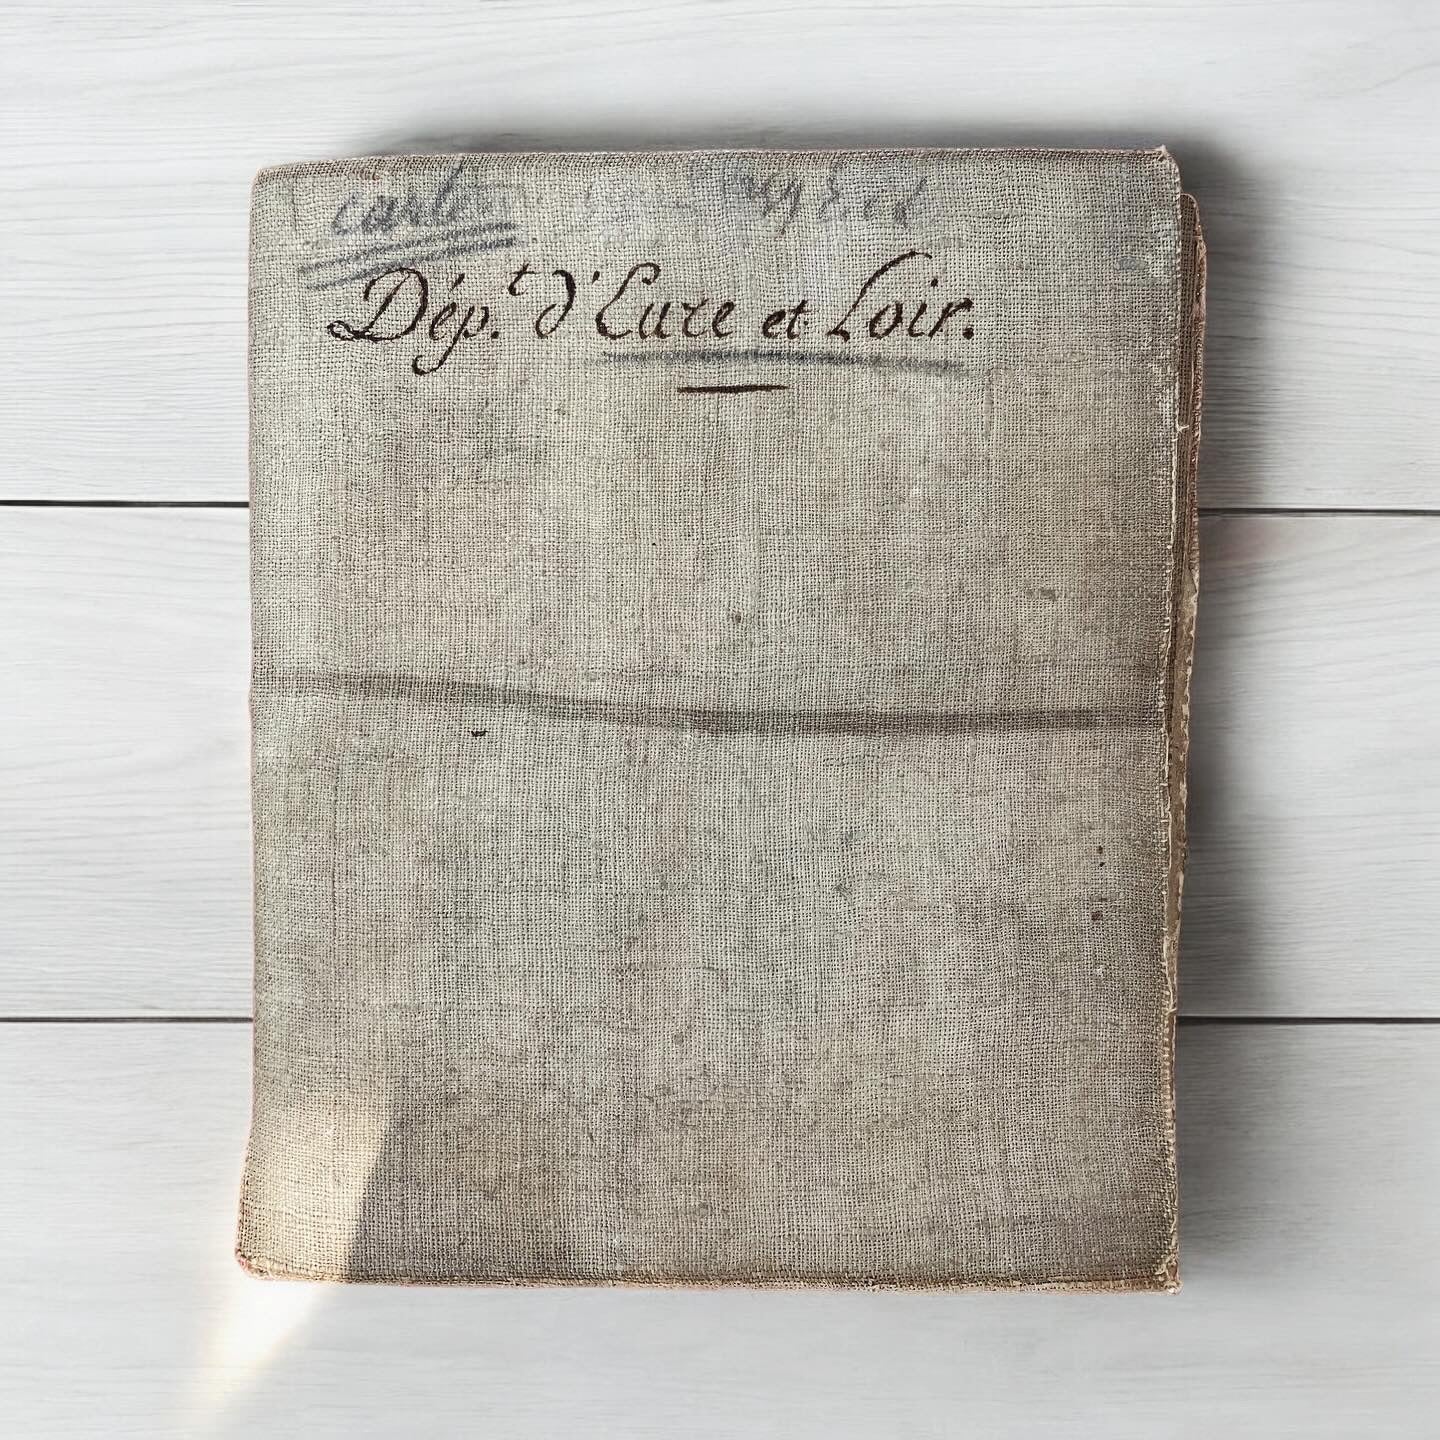 carte
Dép.t d'Eure et Loir.